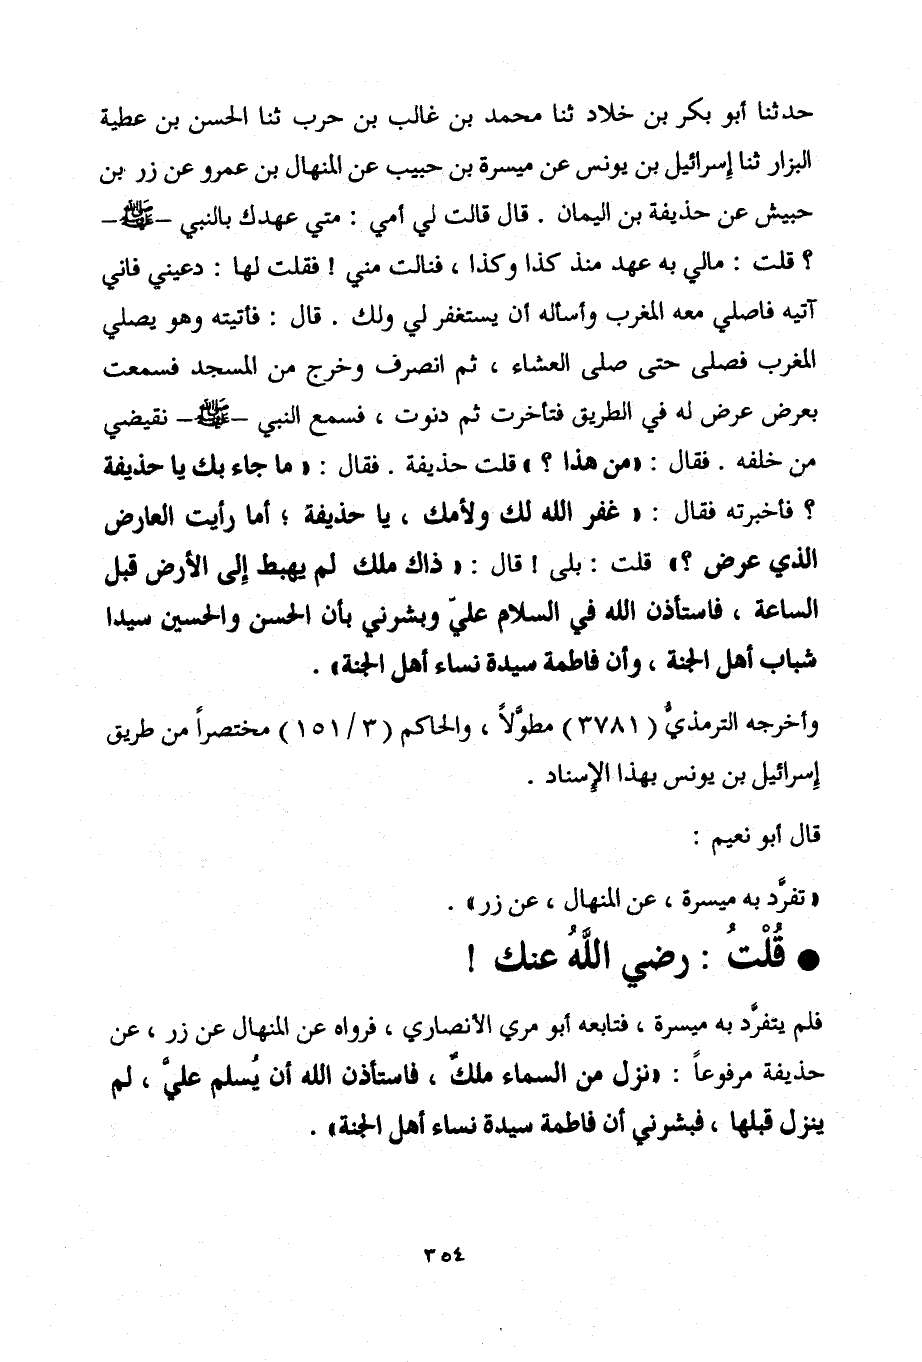 حدثنا أبو بكر بن خلاد ثنا محمد بن غالب بن حرب ثنا الحسن بن عطية
البزار ثنا إسرائيل بن يونس عن ميسرة بن حبيب عن المنهال بن عمرو عن زر بن
حبيش عن حذيفة بن اليمان . قال قالت لي أمي : متي عهدك بالنبي – ﷺ –
؟ قلت : مالي به عهد منذ كذا وكذا ، فنالت مني ! فقلت لها : دعيني فاني
آتيه فاصلي معه المغرب وأسأله أن يستغفر لي ولك . قال : فأتيته وهو يصلي
المغرب فصلى حتى صلى العشاء ، ثم انصرف وخرج من المسجد فسمعت
بعرض عرض له في الطريق فتأخرت ثم دنوت ، فسمع النبي – ﷺ – نقيضي
من خلفه . فقال : «من هذا ؟ » قلت حذيفة . فقال : « ما جاء بك يا حذيفة
؟ فأخبرته فقال : « غفر الله لك ولأمك ، يا حذيفة ؛ أما رأيت العارض
الذي عرض ؟» قلت : بلى ! قال : « ذاك ملك لم يهبط إلى الأرض قبل
الساعة ، فاستأذن الله في السلام عليّ وبشرني بأن الحسن والحسين سيدا
شباب أهل الجنة ، وأن فاطمة سيدة نساء أهل الجنة» .
وأخرجه الترمذيُّ (٣٧٨١) مطوَّلاً ، والحاكم (٣/ ١٥١) مختصراً من طريق
إسرائيل بن يونس بهذا الإسناد .
قال أبو نعيم :
« تفرَّد به ميسرة ، عن المنهال ، عن زر» .
● قُلْتُ : رضي اللَّهُ عنك !
فلم يتفرَّد به ميسرة ، فتابعه أبو مري الأنصاري ، فرواه عن المنهال عن زر ، عن
حذيفة مرفوعاً : «نزل من السماء ملكٌ ، فاستأذن الله أن يُسلم عليَّ ، لم
ينزل قبلها ، فبشرني أن فاطمة سيدة نساء أهل الجنة» .
٣٥٤